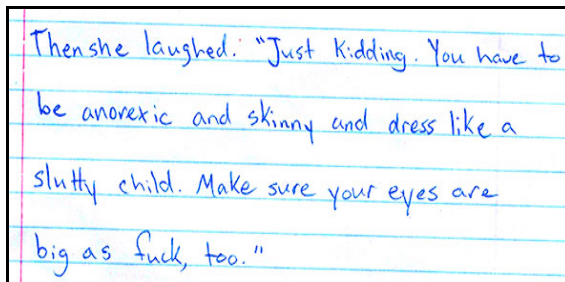 Then she laughed. "Just Kidding. You have to
be anorexic and skinny and dress like a
slutty child. Make sure your eyes are
big as fuck, too."